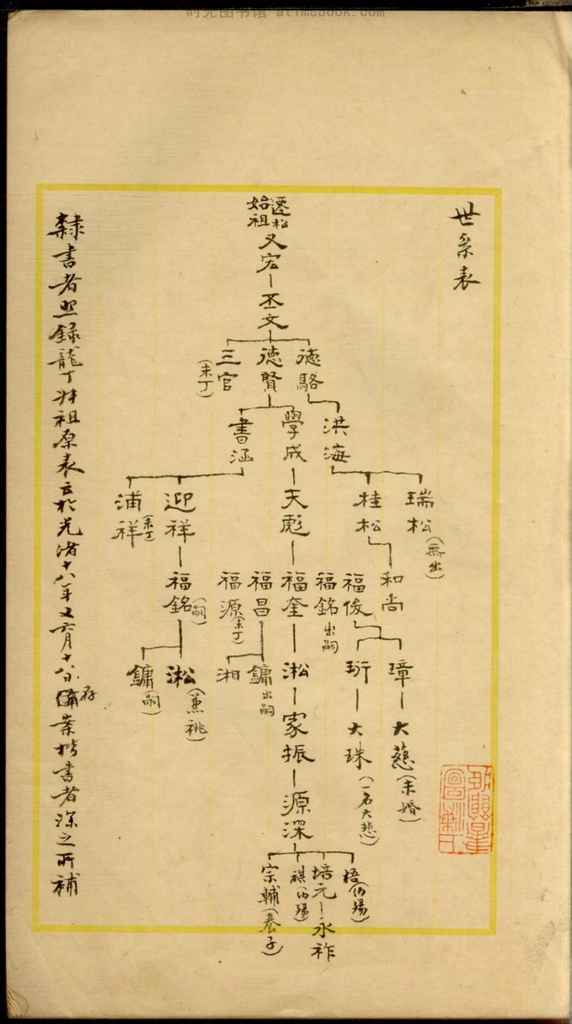 时光图书馆 atimebook.com
世系表
遷松始祖
又宏
丕文
德駱
德賢
三官(未丁)
洪海
學成
書涵
瑞松(無出)
桂松
天彪
迎祥
浦祥(未丁)
和尚
福俊
福銘出嗣
福奎
福昌
福源(未丁)
福銘(嗣)
璋
珩
淞
鏞出嗣
湘
淞(兼祧)
鏞(嗣)
大慈(未婚)
大珠(一名大慧)
家振
源深
梧(伯殤)
培元
祺(仍殤)
宗輔(養子)
永祚
隸書者照錄龍丁外祖原表立於光緒十八年又六月十八日存備案楷書者深之所補